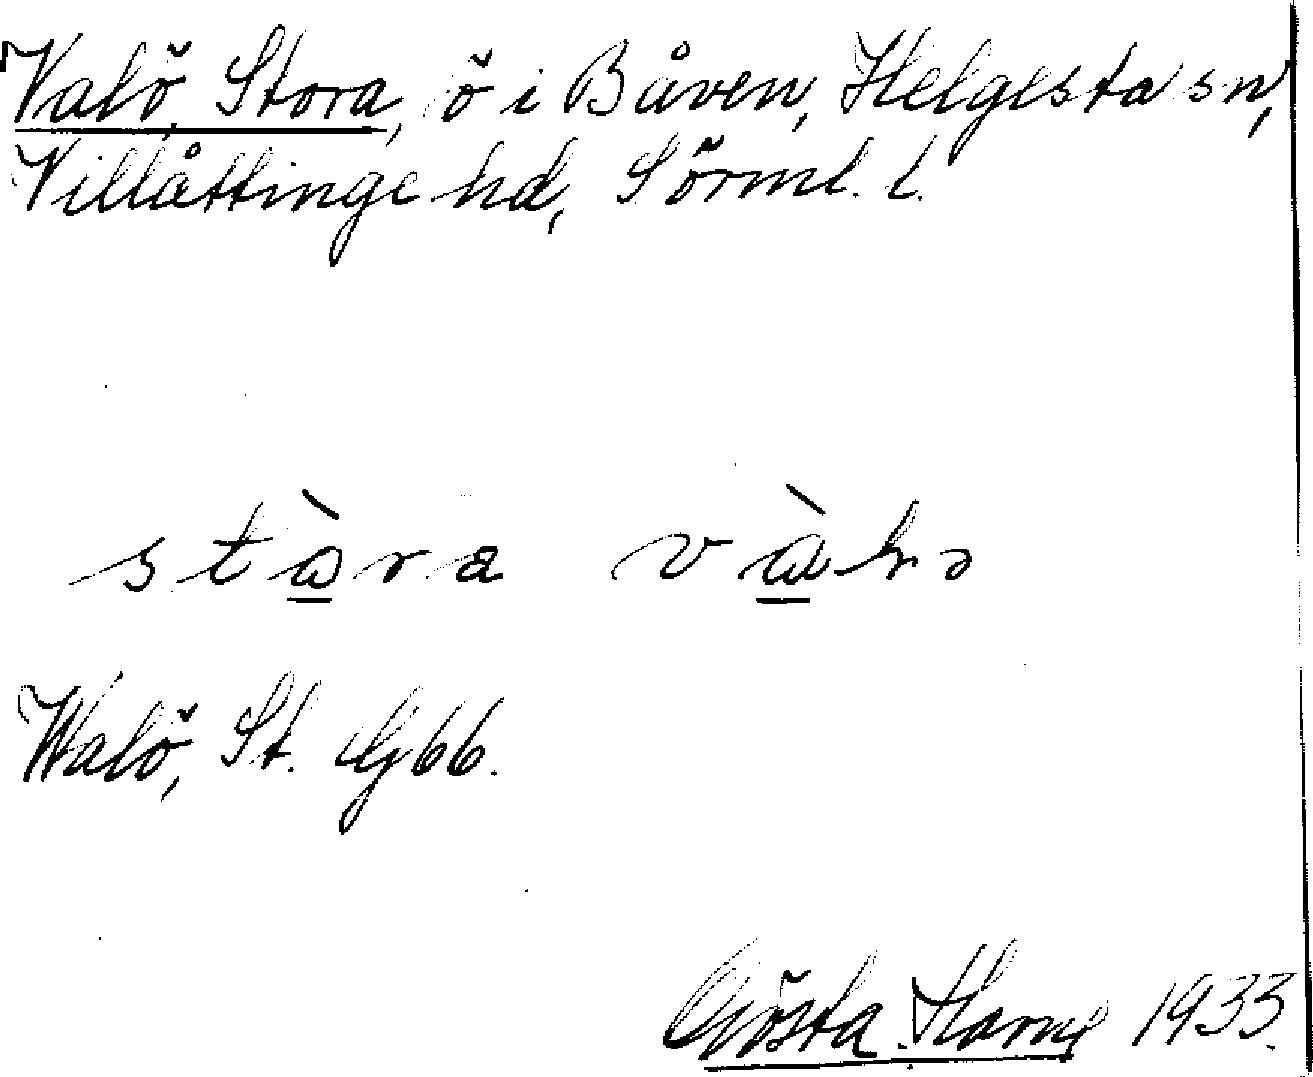 Valö, Stora, ö i Båven, Helgesta sn,
Villåttinge hd, Sörml. l.
stòra
Walö, St. Gj 66.
Gösta 1933.